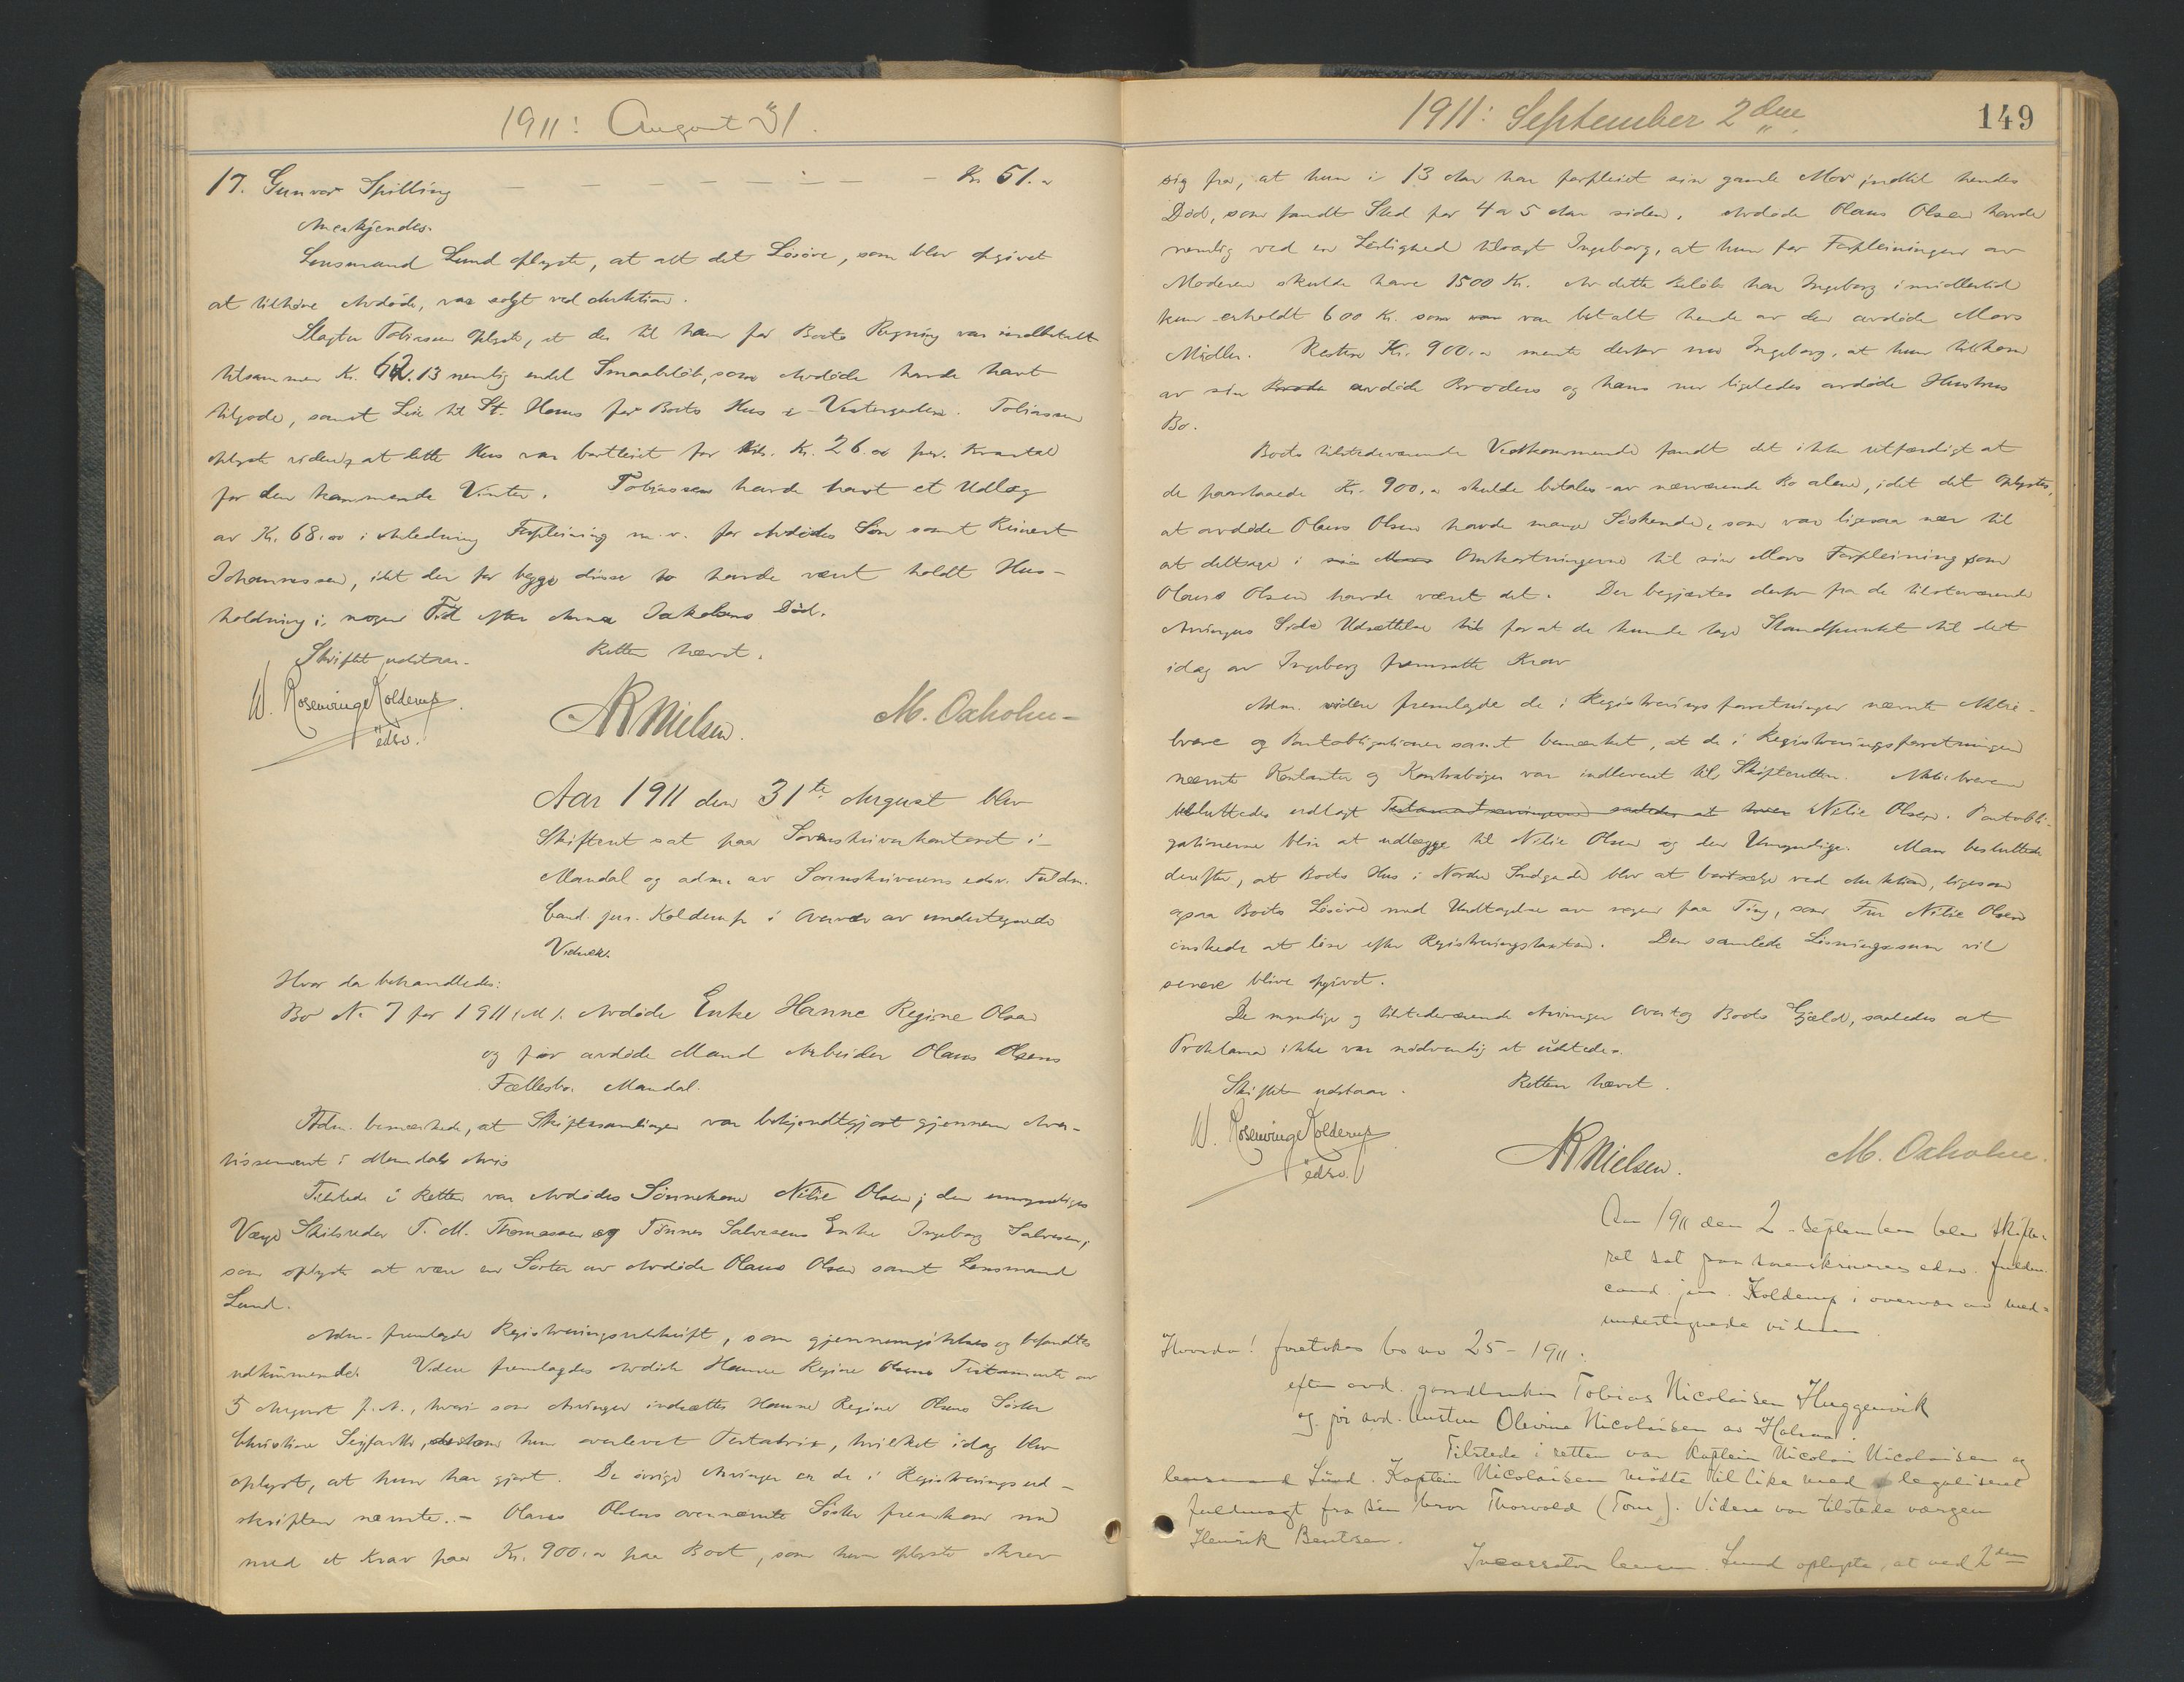 1911: August 31.
17. Gunvor Spilling — — — — — — — — Kr. 51.
Anerkjendes.
Lensmand Lund oplyste, at alt det Løsøre, som blev opgivet
at tilhøre Avdøde, var solgt ved Auktion.
Slagter Tobiassen oplyste, at der til ham for Boets Regning var indbetalt
tilsammen Kr. 62.13 nemlig endel Smaabeløb, som Avdøde havde havt
tilgode, samt Leie til St. Hans for Boets Hus i Vestergaden. Tobiassen
oplyste videre, at dette Hus var bortleiet for Kr. 26.00 per. Kvartal
for den kommende Vinter. Tobiassen havde havt et Udlæg
av Kr. 68.00 i Anledning Forpleining m.v. for Avdødes Søn samt Reinert
Johannessen, idet der for begge disse to havde vært holdt Hus-
holdning i nogen Tid efter Anna Jakobsens Død.
Skiftet udstaar. Retten hævet.
W. Rosenvinge Kolderup
edsv.
AR Nielsen. M. Oxholm
Aar 1911 den 31te August blev
Skifteret sat paa Sorenskriverkontoret i
Mandal og adm. av Sorenskriverens edsv. Fuldm.
Cand. jur. Kolderup i Overvær av undertegnede
Vidner.
Hvor da behandledes:
Bo No 7 for 1911 (M). Avdøde Enke Hanne Regine Olsen
og før avdøde Mand Arbeider Olaus Olsens
Fællesbo. Mandal.
Adm. bemærkede, at Skiftesamlingen var bekjendtgjort gjennem Aver-
tissement i Mandals Avis
Tilstede i Retten var Avdødes Sønnekone Nilie Olsen; den umyndiges
Værge Skibsreder T. M. Thomassen og Tønnes Salvesens Enke Ingeborg Salvesen,
som oplyste at være en Søster av Avdøde Olaus Olsen samt Lensmand
Lund.
Adm. fremlagde Registreringsutskrift, som gjennemgikkes og befandtes
udtømmende. Videre fremlagdes Avdøde Hanne Regine Olsens Testamente av
5 August f.A., hvori som Arvinger indsættes Hanne Regine Olsens Søster
Christine hun overlevet Testatrix, hvilket idag blev
oplyst, at hun har gjort. De øvrige Arvinger er de i Registreringsud-
skriften nævnte. – Olaus Olsens ovennævnte Søster fremkom nu
med et Krav paa Kr. 900.00 paa Boet, som hun oplyste skrev
1911: September 2den
149
sig fra, at hun i 13 Aar har forpleiet sin gamle Mor indtil hendes
Død, som fandt Sted for 4 a 5 Aar siden. Avdøde Olaus Olsen havde
nemlig ved en Leilighed tilsagt Ingeborg, at hun for Forpleiningen av
Moderen skulde have 1500 Kr. Av dette Beløb har Ingeborg imidlertid
kun erholdt 600 Kr. som var betalt hende av den avdøde Mors
Midler. Resten Kr. 900.00 mente derfor nu Ingeborg, at hun tilkom
av sin avdøde Broders og hans nu ligeledes avdøde Hustrus
Bo.
Boets tilstedeværende Vedkommende fandt det ikke retfærdigt at
de paastaaede Kr. 900.00 skulde betales av nærværende Bo alene, idet det oplystes,
at avdøde Olaus Olsen havde mange Søskende, som var ligesaa nær til
at deltage i Omkostningerne til sin Mors Forpleining som
Olaus Olsen havde været det. Der begjærtes derfor fra de tilsteværende
Arvingers Side Udsættelse for at de kunde tage Standpunkt til det
idag av Ingeborg fremsatte Krav
Adm. videre fremlagde de i Registreringsforretningen nævnte Aktie-
breve og Pantobligationer samt bemærket, at de i Registreringsforretningen
nævnte Kontanter og Kontrabøger var indleveret til Skifteretten. Aktiebrevene
besluttedes udlagt Nilie Olsen. Pantobli-
gationerne blir at udlægge til Nilie Olsen og den Umyndige. Man besluttede
derefter, at Boets Hus i Nordre blev at bortsælge ved Auktion, ligesom
ogsaa Boets Løsøre med Undtagelse av nogen faa Ting, som Fru Nilie Olsen
ønskede at løse efter Registreringstaxten. Den samlede Løsningssum vil
senere blive opgivet.
De myndige og tilstedeværende Arvinger overtog Boets Gjæld, saaledes at
Proklama ikke var nødvendig at udstede.
Skiftet udstaar. Retten hævet.
W. Rosenvinge Kolderup
edsv.
AR Nielsen. M. Oxholm.
Aar 1911 den 2. september blev skifte-
ret sat paa sorenskriverens edsv. fuldm.
cand. jur. Kolderup i overvær av med-
undertegnede vidner.
Hvorda! foretokes bo no 25 – 1911.
efter avd. gaardbruker Tobias Nicolaisen Huggenvik
og før avd. hustru Olevine Nicolaisen av Halsaa.
Tilstede i retten var Kaptein Nicolai Nicolaisen og
lensmand Lund. Kaptein Nicolaisen mødte tillike med legaliseret
fuldmagt fra sin bror Thorvald (Tom). Videre var tilstede værgen
Henrik Bentsen.
Incassator lensm. Lund oplyste, at ved 2den